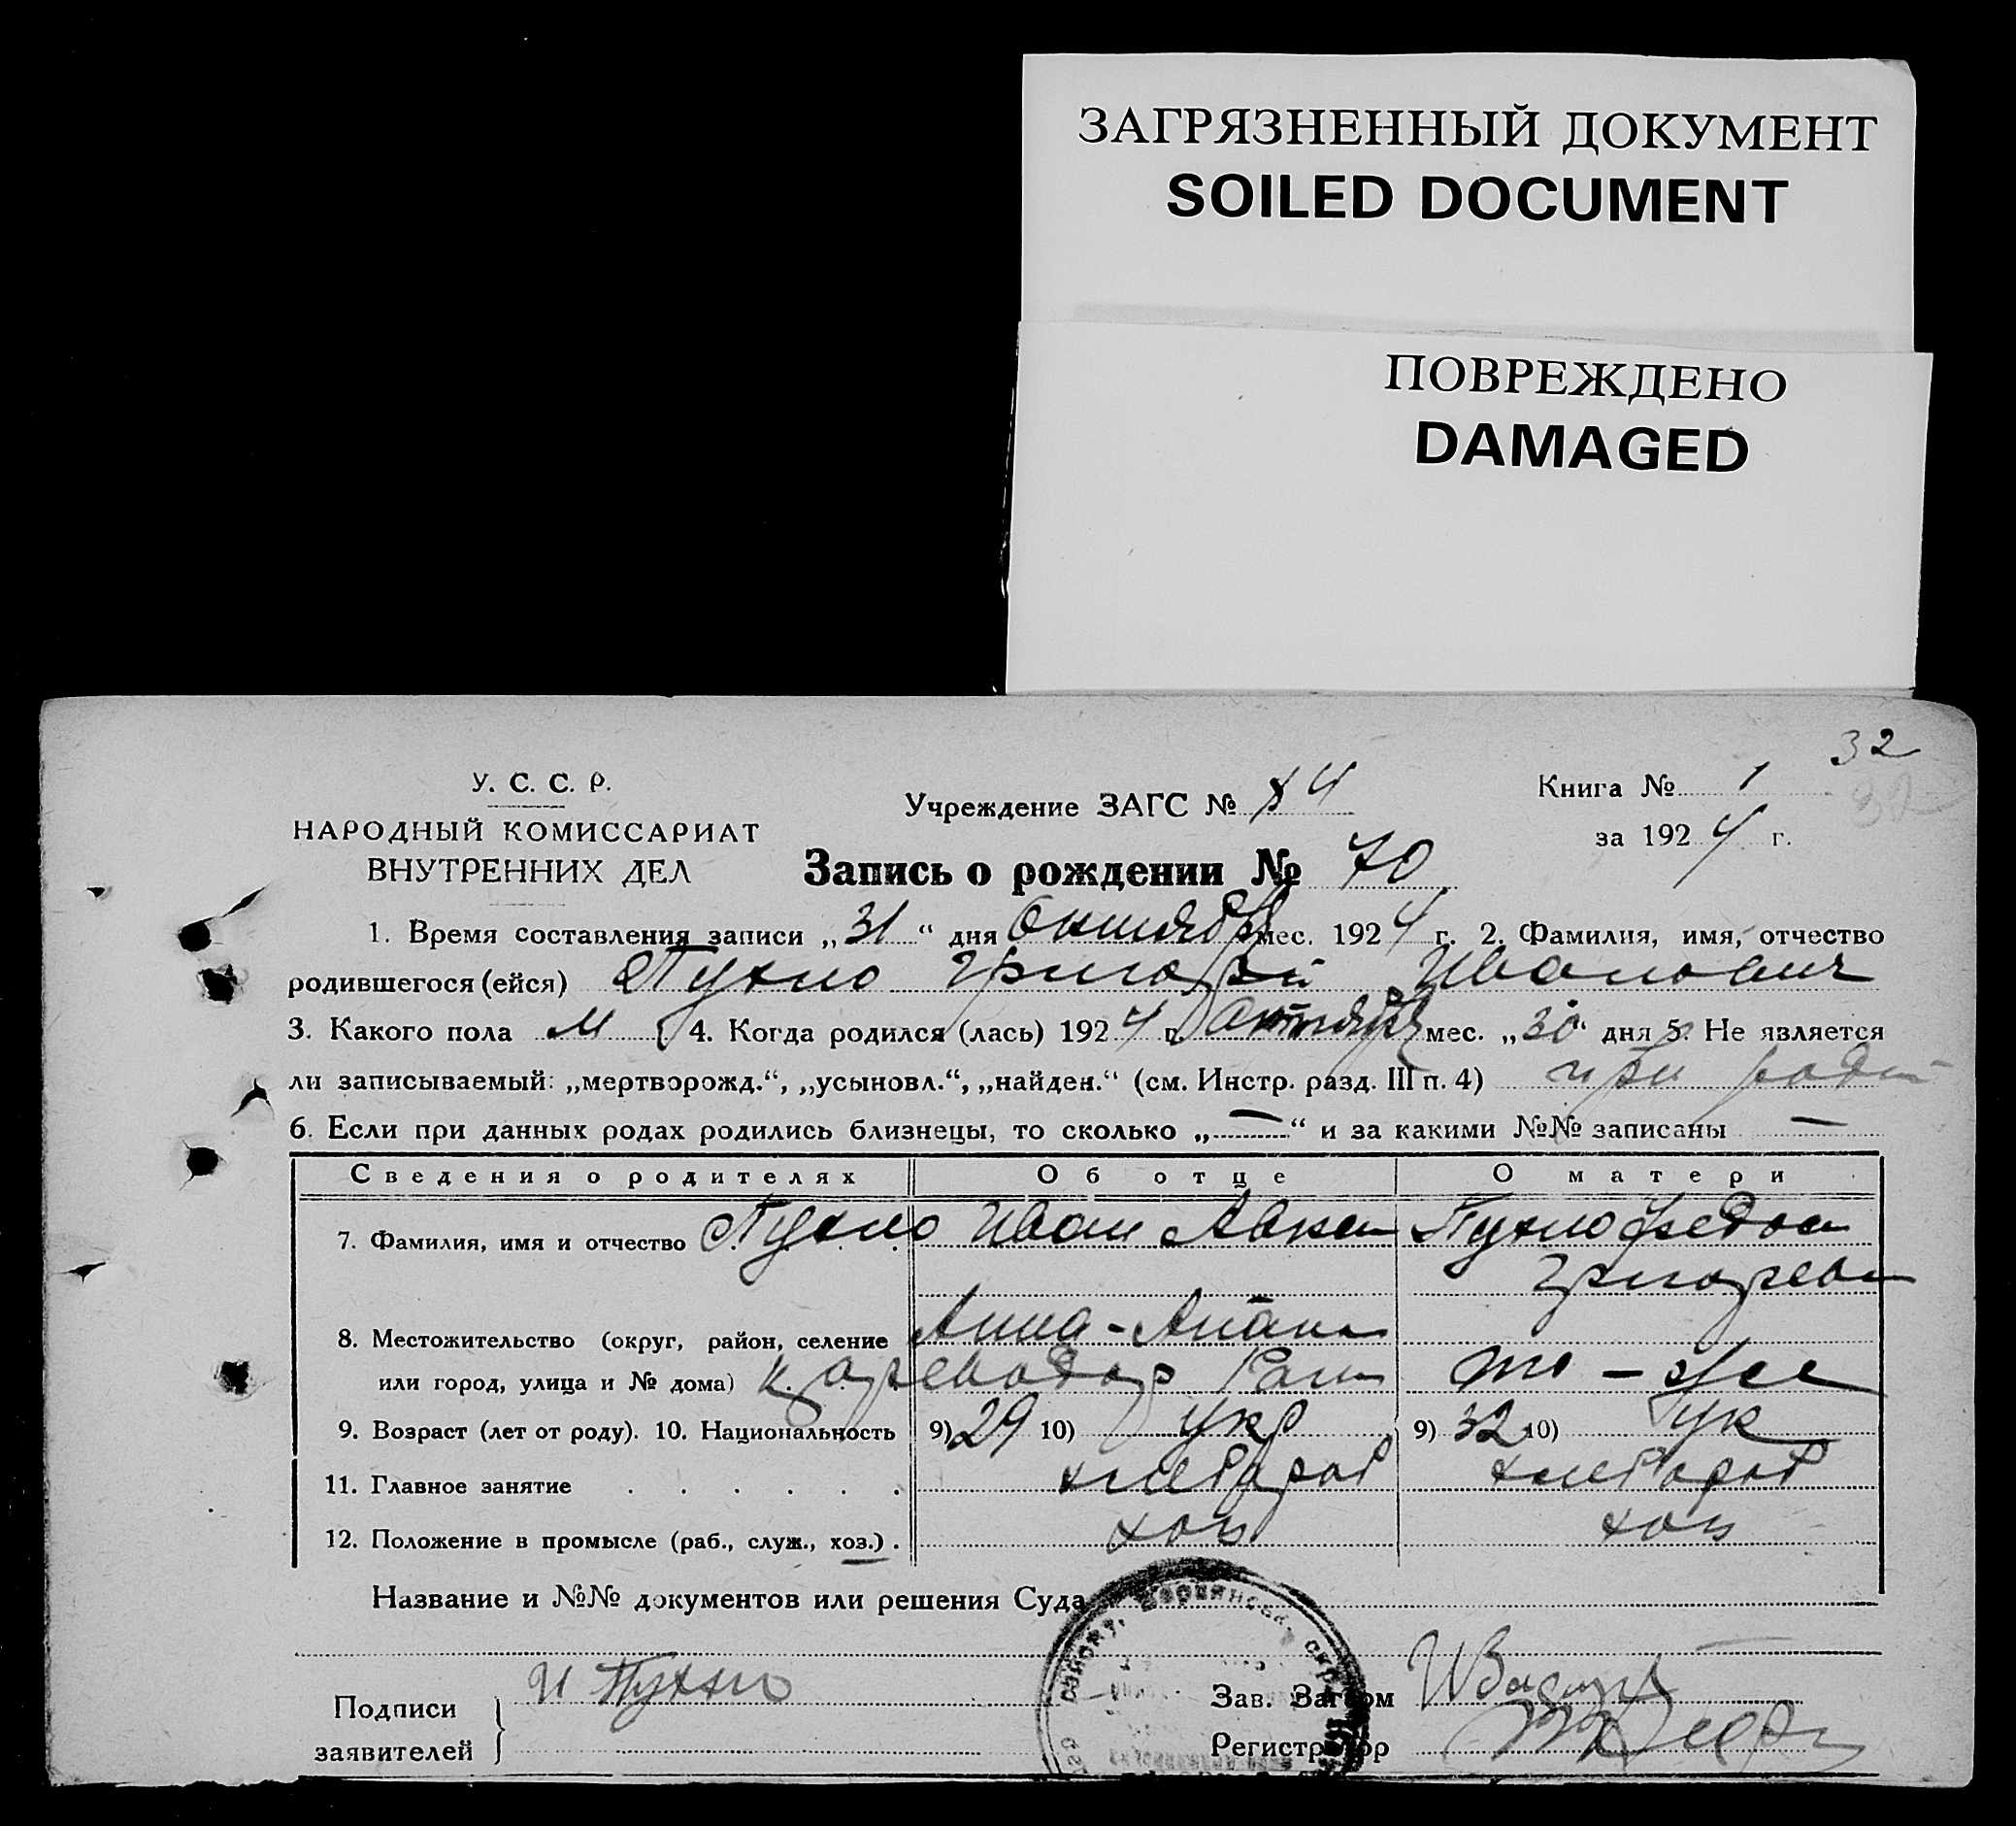 ЗАГРЯЗНЕННЫЙ ДОКУМЕНТ
SOILED DOCUMENT
ПОВРЕЖДЕНО
DAMAGED
32
У. С. С. Р.
НАРОДНЫЙ КОМИССАРИАТ
ВНУТРЕННИХ ДЕЛ
Учреждение ЗАГС № 4
Книга № 1
за 1924 г.
Запись о рождении № 70
1. Время составления записи „31“ дня Октября мес. 1924 г. 2. Фамилия, имя, отчество
родившегося (ейся) Пухно Григорий Иванович
3. Какого пола М 4. Когда родился (лась) 1924 г. Октября мес. „30“ дня 5. Не является
ли записываемый: „мертворожд.“, „усыновл.“, „найден.“ (см. Инстр. разд. III п. 4) при
6. Если при данных родах родились близнецы, то сколько „—“ и за какими №№ записаны —
Сведения о родителях Об отце О матери
7. Фамилия, имя и отчество Пухно Иван Пухно
8. Местожительство (округ, район, селение
или город, улица и № дома) то-же
9. Возраст (лет от роду). 10. Национальность 9) 29 10) укр 9) 32 10) ук
11. Главное занятие хлебороб хлебороб
12. Положение в промысле (раб., служ., хоз.) . хоз хоз
Название и №№ документов или решения Суда
Подписи
заявителей
И Пухно
Зав. Загсом
Регистратор